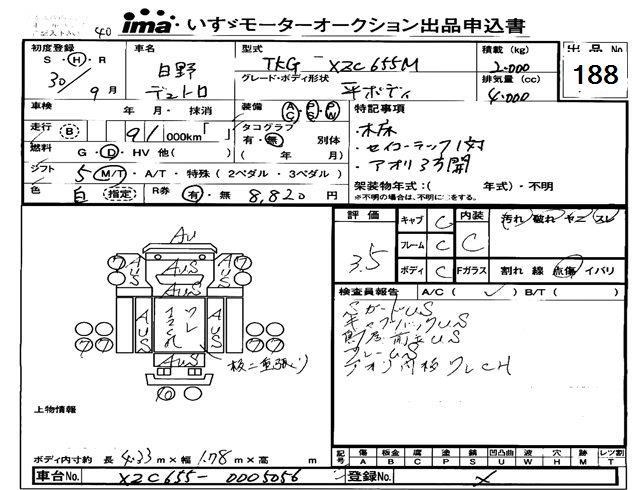 40 ima いすゞモーターオークション出品申込書
初度登録 車名 型式 積載(kg) 出品No
S・H・R 日野 TKG- XZC655M 2.000 188
30/9月 デュトロ グレード・ボディ形状 平ボディ 排気量(cc) 4.000
車検 年 月・抹消 装備 AC・PS・PW 特記事項
走行 B 91 000km「 」 タコグラフ 有・無 別体 ・木床
燃料 G・D・HV 他( ) ( 年 月) ・セイコーラック1対
シフト 5 M/T・A/T・特殊(2ペダル・3ペダル) ・アオリ3方開
色 白 指定 R券 有・無 8,820円 架装物年式:( 年式)・不明
※不明の場合は、不明に○をする。
評価 3.5 キャブ C 内装 C 汚れ 破れ ヤニ スレ
フレーム C
ボディ C Fガラス 割れ 線 点傷 イバリ
検査員報告 A/C( ✓ ) B/T( )
SガードUS
キャブバックUS
AU
AUS
フレームUS
アオリ内板ワレCH
AUS
AUS
AUS
AUS
ワレ
AUS
板二重張り
上物情報
ボディ内寸約 長 4.33m×幅 1.78m×高 m
記号 傷A 板金B 腐C 塗P 錆S 凹凸曲U 波W 穴H 跡M レツ割T
車台No. XZC655-0005056 登録No. X